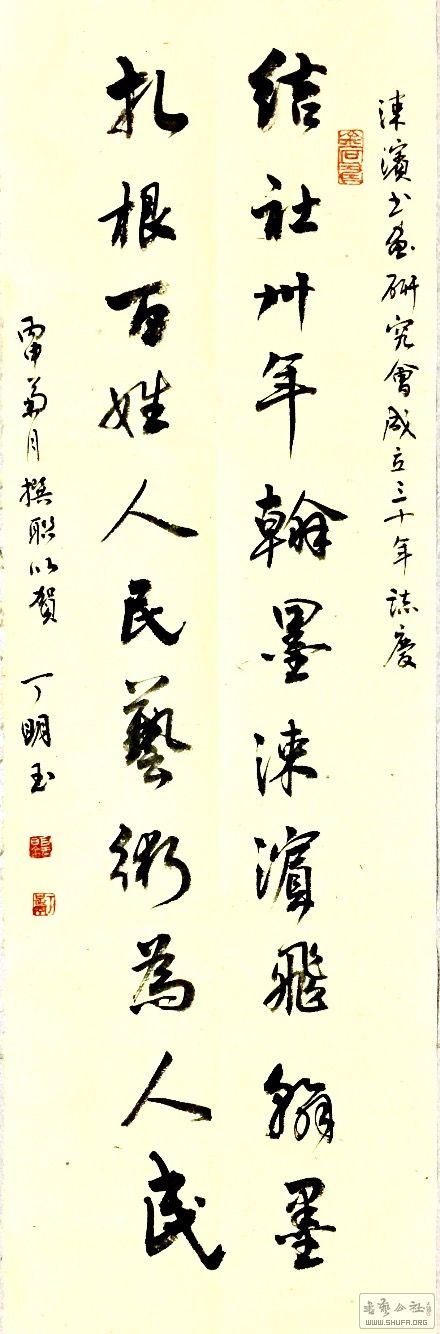 涑濱书画研究會成立三十年誌慶
结社卅年翰墨涑濵飛翰墨
扎根百姓人民藝術為人民
丙申菊月撰聯以賀 丁明玉
书艺公社
WWW.SHUFA.ORG